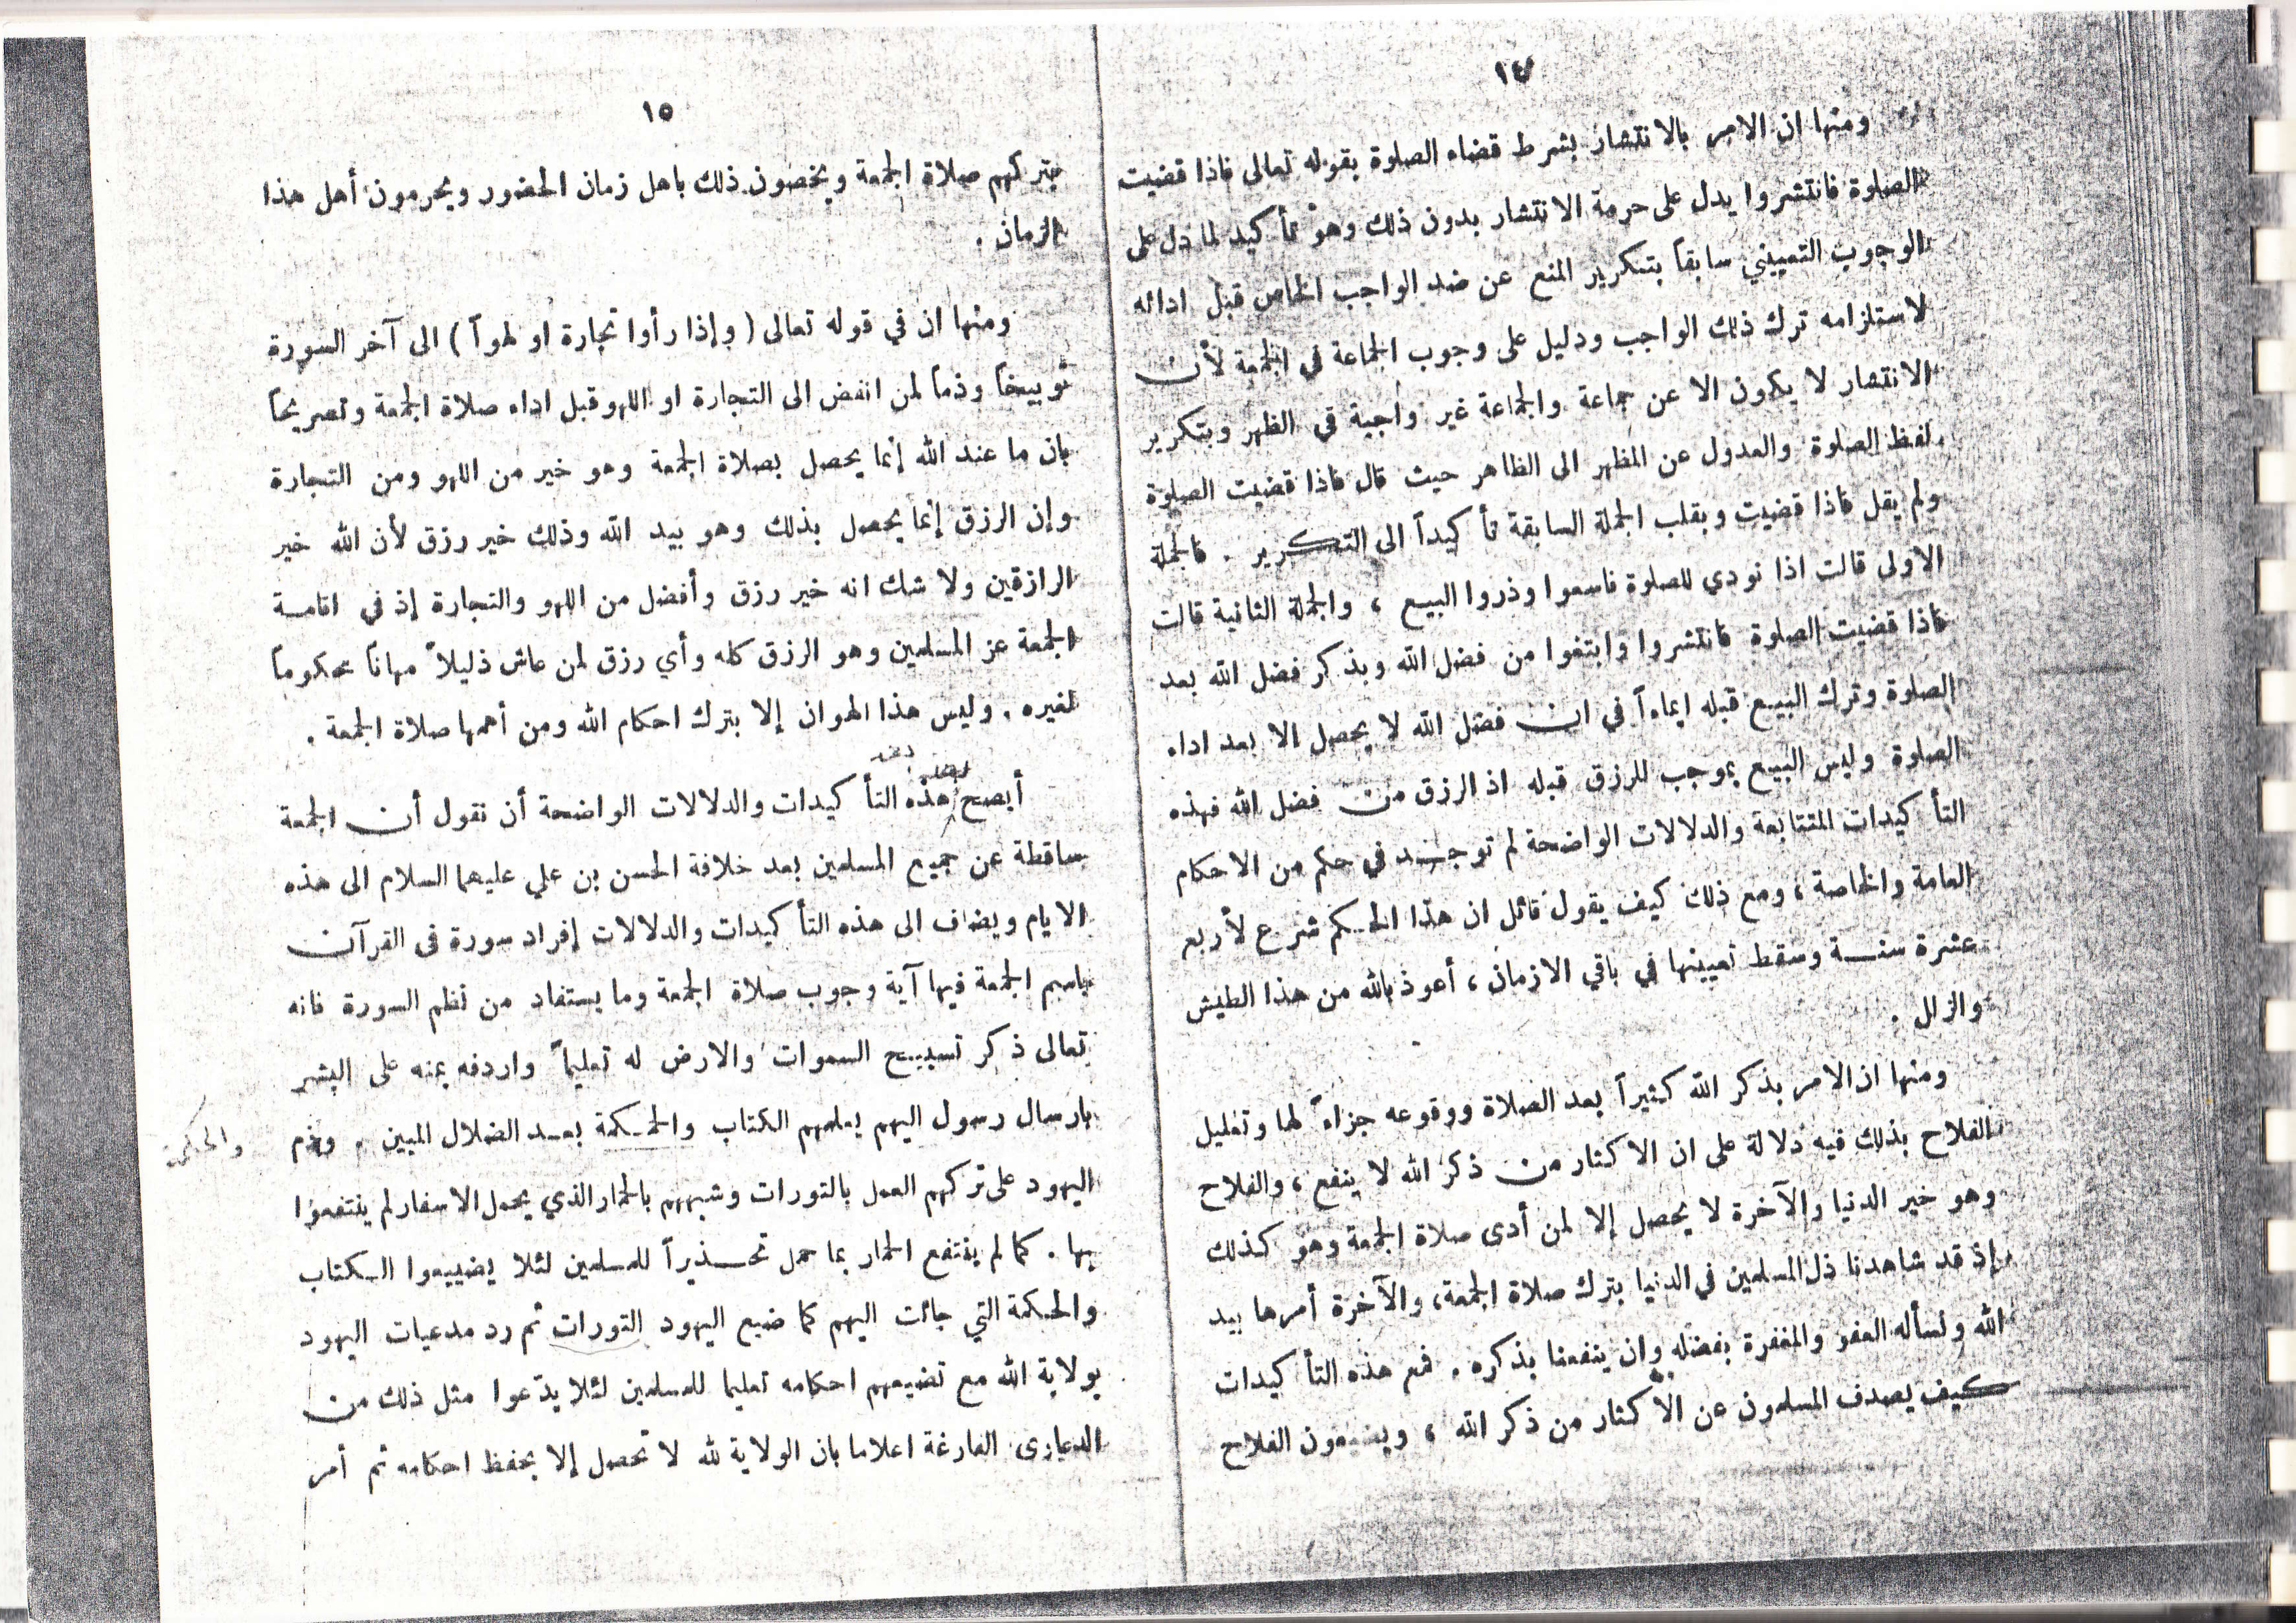 ١٤
ومنها ان الامر بالانتشار بشرط قضاء الصلوة بقوله تعالى فاذا قضيت
الصلوة فانتشروا يدل على حرمة الانتشار بدون ذلك وهو تأكيد لما دل على
الوجوب التعييني سابقاً بتكرير المنع عن ضد الواجب الخاص قبل ادائه
لاستلزامه ترك ذلك الواجب ودليل على وجوب الجماعة في الجمعة لأن
الانتشار لا يكون الا عن جماعة والجماعة غير واجبة في الظهر وبتكرير
لفظ الصلوة والعدول عن المظهر الى الظاهر حيث قال فاذا قضيت الصلوة
ولم يقل فاذا قضيت وبقلب الجملة السابقة تأكيداً الى التكرير . فالجملة
الاولى قالت اذا نودي للصلوة فاسعوا وذروا البيع ، والجملة الثانية قالت
فاذا قضيت الصلوة فانتشروا وابتغوا من فضل الله وبذكر فضل الله بعد
الصلوة وترك البيع قبله ايماءاً في ان فضل الله لا يحصل الا بعد اداء
الصلوة وليس البيع بموجب للرزق قبله اذ الرزق من فضل الله فهذه
التأكيدات المتتابعة والدلالات الواضحة لم توجد في حكم من الاحكام
العامة والخاصة ، ومع ذلك كيف يقول قائل ان هذا الحكم شرع لأربع
عشرة سنة وسقط تعيينها في باقي الازمان ، أعوذ بالله من هذا الطيش
والزلل .
ومنها ان الامر بذكر الله كثيراً بعد الصلاة ووقوعه جزاءً لها وتعليل
الفلاح بذلك فيه دلالة على ان الاكثار من ذكر الله لا ينفع ، والفلاح
وهو خير الدنيا والآخرة لا يحصل إلا لمن أدى صلاة الجمعة وهو كذلك
إذ قد شاهدنا ذل المسلمين في الدنيا بترك صلاة الجمعة، والآخرة أمرها بيد
الله ونسأله العفو والمغفرة بفضله وان ينفعنا بذكره . فمع هذه التأكيدات
كيف يصدف المسلمون عن الاكثار من ذكر الله ، ويضيعون الفلاح
١٥
بتركهم صلاة الجمعة ويخصون ذلك باهل زمان الحضور ويحرمون أهل هذا
الزمان .
ومنها ان في قوله تعالى ( وإذا رأوا تجارة او لهواً ) الى آخر السورة
توبيخاً وذماً لمن انفض الى التجارة او اللهو قبل اداء صلاة الجمعة وتصريحاً
بان ما عند الله إنما يحصل بصلاة الجمعة وهو خير من اللهو ومن التجارة
وإن الرزق إنما يحصل بذلك وهو بيد الله وذلك خير رزق لأن الله خير
الرازقين ولا شك انه خير رزق وأفضل من اللهو والتجارة إذ في اقامة
الجمعة عز المسلمين وهو الرزق كله وأي رزق لمن عاش ذليلاً مهاناً محكوماً
لغيره . وليس هذا الهوان إلا بترك احكام الله ومن أهمها صلاة الجمعة .
بعد
أيصح هذه التأكيدات والدلالات الواضحة أن نقول أن الجمعة
ساقطة عن جميع المسلمين بعد خلافة الحسن بن علي عليهما السلام الى هذه
الايام ويضاف الى هذه التأكيدات والدلالات إفراد سورة في القرآن
باسم الجمعة فيها آية وجوب صلاة الجمعة وما يستفاد من نظم السورة فانه
تعالى ذكر تسبيح السموات والارض له تعليماً واردفه بمنه على البشر
بارسال رسول اليهم يعلمهم الكتاب والحكمة بعد الضلال المبين . وذم
والحكمة
اليهود على تركهم العمل بالتورات وشبههم بالحمار الذي يحمل الاسفار لم ينتفعوا
بها . كما لم ينتفع الحمار بما حمل تحذيراً للمسلمين لئلا يضييعوا الكتاب
والحكمة التي جائت اليهم كما ضيع اليهود التورات ثم رد مدعيات اليهود
بولاية الله مع تضييعهم احكامه تعليما للمسلمين لئلا يدّعوا مثل ذلك من
الدعاوى الفارغة اعلاما بان الولاية لله لا تحصل إلا بحفظ احكامه ثم أمر